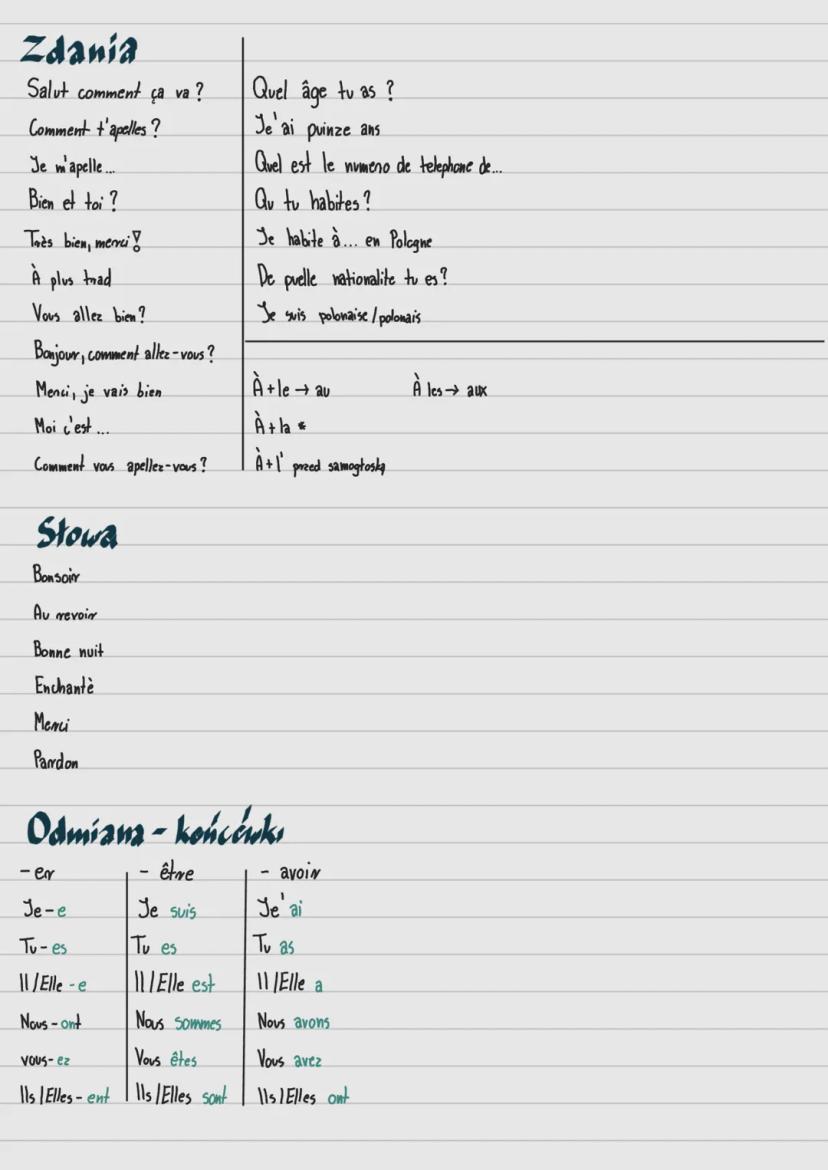 Zdania
Salut comment ça va ?
Comment t'apelles ?
Je m'apelle...
Bien et toi ?
Très bien, merci !
À plus trad
Vous allez bien ?
Bonjour, comment allez-vous ?
Merci, je vais bien
Moi c'est ...
Comment vous apellez-vous ?
Quel âge tu as ?
Je'ai puinze ans
Quel est le numeno de telephone de...
Qu tu habites ?
Je habite à... en Pologne
De puelle nationalite tu es ?
Je suis polonaise / polonais
À + le → au
À les → aux
À + la *
À + l' przed samogłoską
Słowa
Bonsoir
Au revoir
Bonne nuit
Enchantè
Merci
Pardon
Odmiana - końcówki
- er
Je - e
Tu - es
Il / Elle - e
Nous - ont
vous - ez
Ils / Elles - ent
- être
Je suis
Tu es
Il / Elle est
Nous sommes
Vous êtes
Ils / Elles sont
- avoir
Je' ai
Tu as
Il / Elle a
Nous avons
Vous avez
Ils / Elles ont